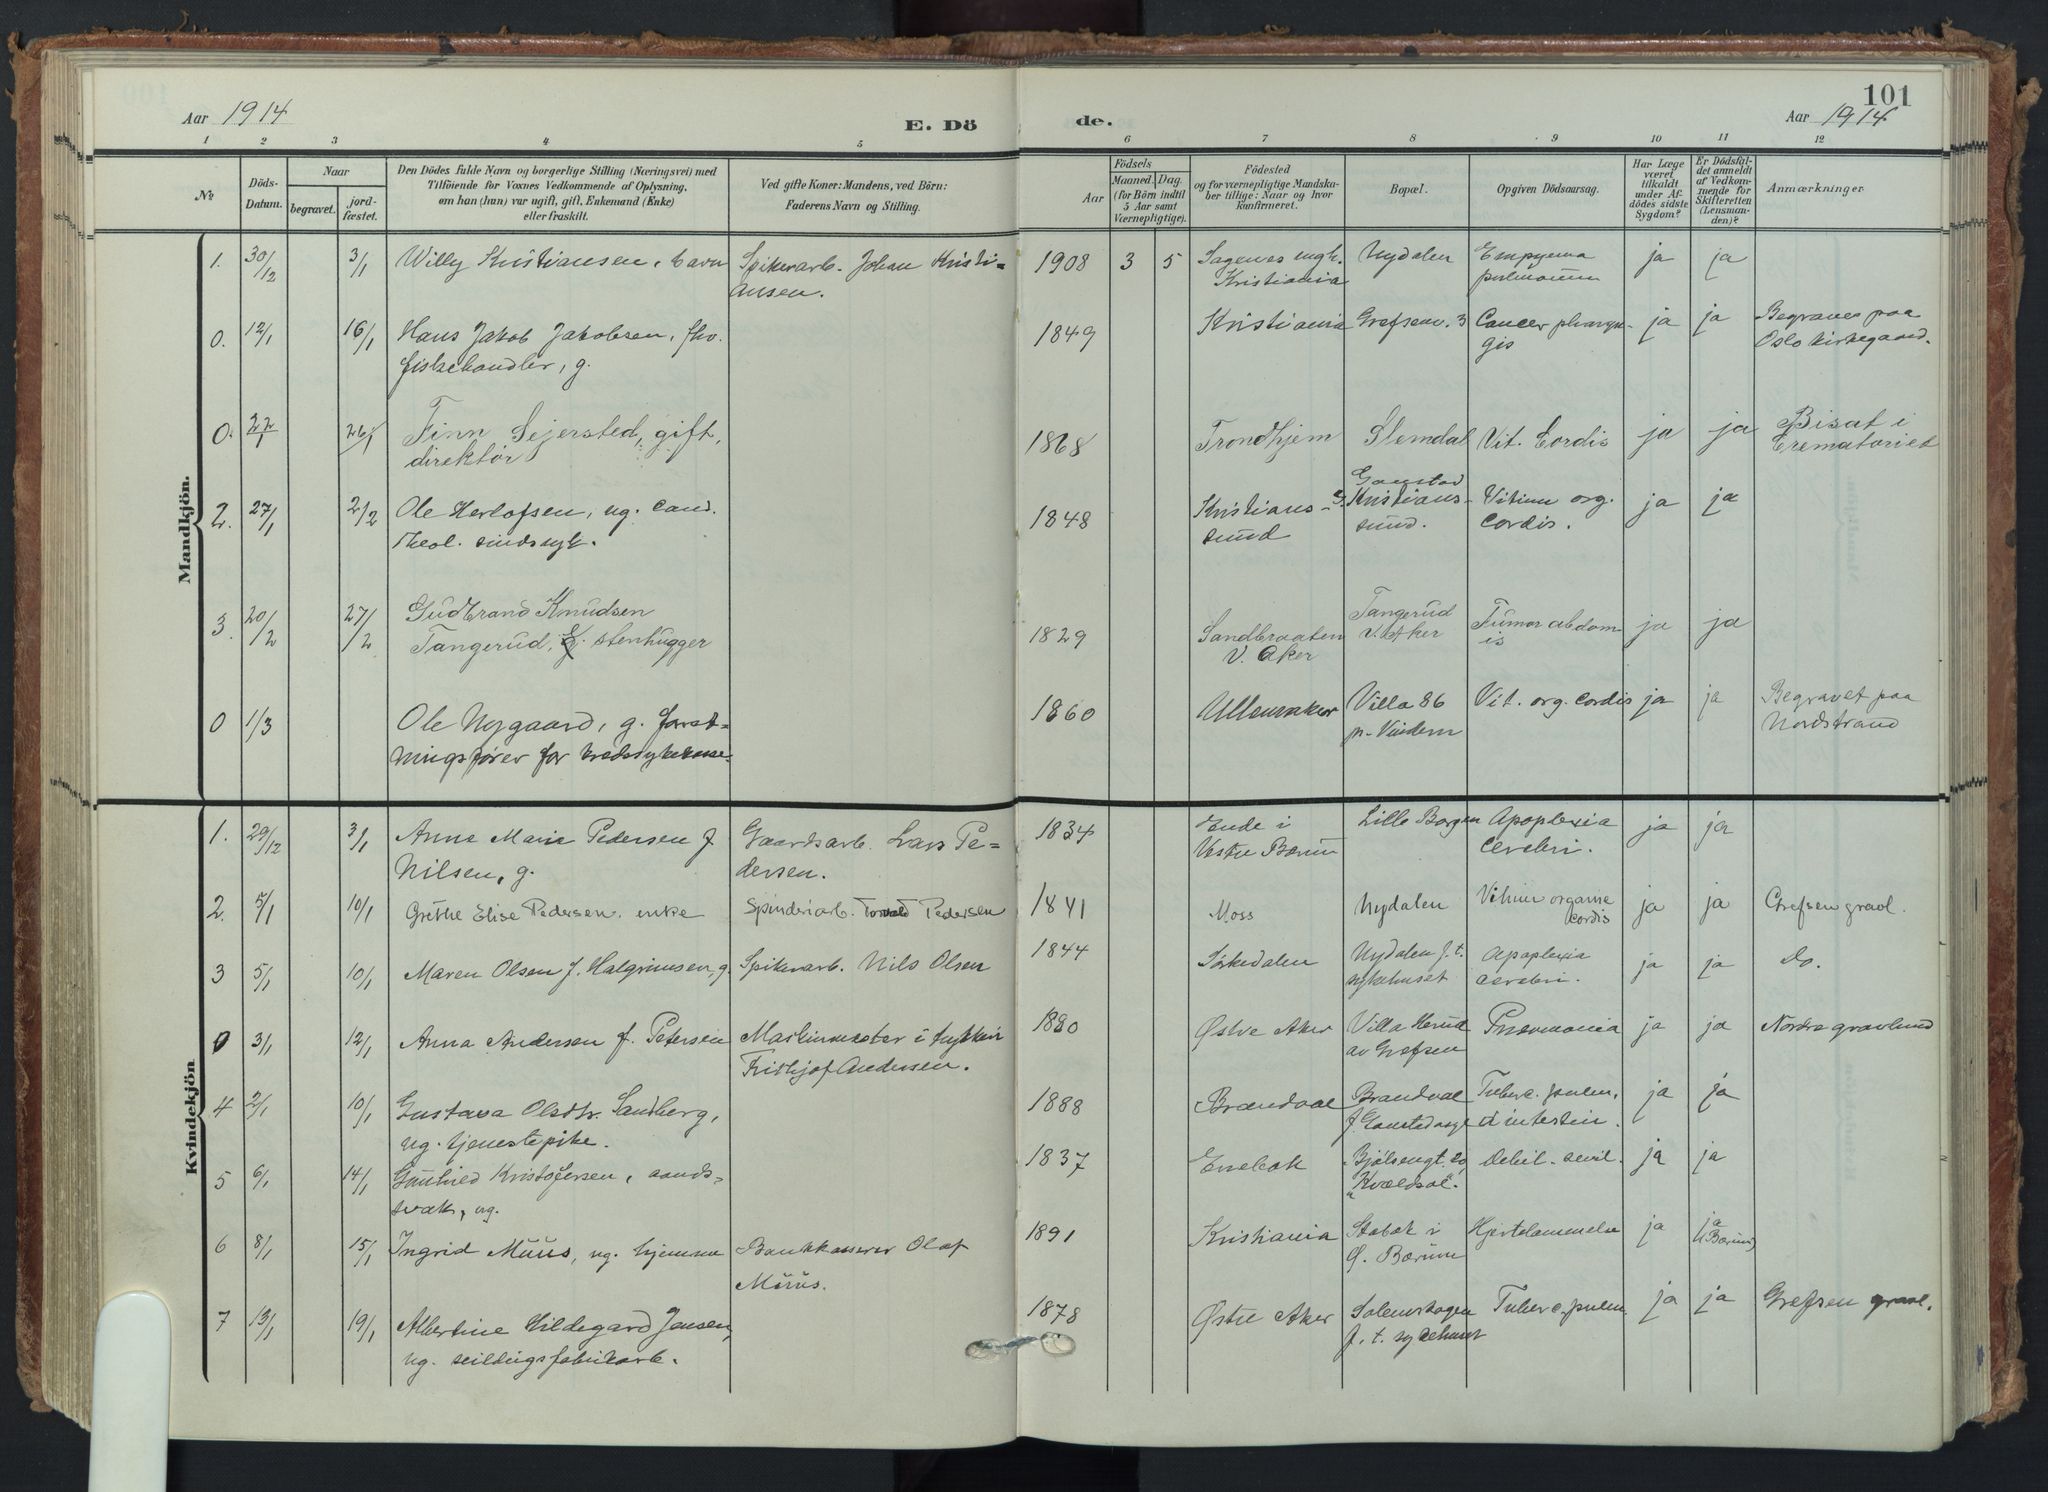 Aar 1914
E. Dö
de.
Aar 1914
101
1 2 3 4 5 6 7 8 9 10 11 12
№
Döds-Datum.
Naar
begravet.
jord-fæstet.
Den Dödes fulde Navn og borgerlige Stilling (Næringsvei) med
Tilföiende for Voxnes Vedkommende af Oplysning,
om han (hun) var ugift, gift, Enkemand (Enke)
eller fraskilt.
Ved gifte Koner: Mandens, ved Börn:
Faderens Navn og Stilling.
Födsels
Aar
Maaned. Dag.
(for Börn indtil
5 Aar samt
Værnepligtige).
Födested
og for værnepligtige Mandska-
ber tillige: Naar og hvor
konfirmeret.
Bopæl.
Opgiven Dödsaarsag.
Har Læge
været
tilkaldt
under Af-
dödes sidste
Sygdom?
Er Dödsfal-
det anmeldt
af Vedkom-
mende for
Skifteretten
(Lensman-
den)?
Anmærkninger
Mandkjön.
1. 30/12 3/1 Willy Kristiansen, barn Spikerarb. Johan Kristi- 1908 3 5 Sagenes mgh. Nydalen Empyema ja ja
ansen. Kristiania pulmonum
0. 12/1 16/1 Hans Jakob Jakobsen, fhv. 1849 Kristiania Grefsenv. 3 Cancer pharyn- ja ja Begraves paa
fiskehandler, g. gis Oslo kirkegaard.
0. 22/1 26/1 Finn Sejersted, gift, 1868 Trondhjem Slemdal Vit. Cordis ja ja Bisat i
direktör Crematoriet
2. 27/1 2/2 Ole Herlofsen, ug. cand. 1848 Kristians- Gaustad Kristians- Vitium org. ja ja
theol. sindssyk. sund sund. Cordis.
3. 20/2 27/2 Gudbrand Knudsen 1829 Sandbraaten Tangerud Tumor abdom- ja ja
Tangerud, stenhugger V. Aker V. Aker is
0 1/3 Ole Nygaard, g. forret- 1860 Ullensaker Villa 86 Vit. org. cordis ja ja Begravet paa
ningsfører for kredssykekasse. p. Vindern Nordstrand
Kvindekjön
1. 29/12 3/1 Anna Marie Pedersen f. Gaardsarb. Lars Pe- 1834 Ende i Lille Borgen Apoplexia ja ja
Nilsen, g. dersen. Vestre Bærum Cerebri.
2. 5/1 10/1 Grethe Elise Pedersen. enke Spinderiarb. Torvald Pedersen 1841 Moss Nydalen Vitium organic cordis ja ja Grefsen gravl.
3 5/1 10/1 Maren Olsen f. Halgrimsen, g. Spikerarb. Nils Olsen 1844 Sørkedalen Nydalen f. t. Apoplexia ja ja Do.
sykehuset cerebri.
0 3/1 12/1 Anna Andersen f. Petersen Maskinmester i 1880 Østre Aker Villa Pneumonia ja ja Nordre gravlund
Frithjof Andersen. av Grefsen
4 2/1 10/1 Gustava Olsdtr. Sandberg, 1888 Brandval Brandval Tuberc. pulm. ja ja
ug. tjenestepike. & intestin.
5 6/1 14/1 Gunhild Kristofersen, aands- 1837 Enebak Bjølsengt. 20 Debil. senil. ja ja
svak, ug. "Kveldsol".
6 8/1 15/1 Ingrid Müüs, ug. hjemme Bankkasserer Olaf 1891 Kristiania Stabæk i Hjertelammelse ja ja
Müüs. Ø. Bærum (i Bærum)
7 13/1 19/1 Albertine Hildegard Jensen, 1878 Østre Aker Solemskogen Tuberc. pulm. ja ja Grefsen gravl.
ug. seildugsfabrikarb. f. t. sykehuset